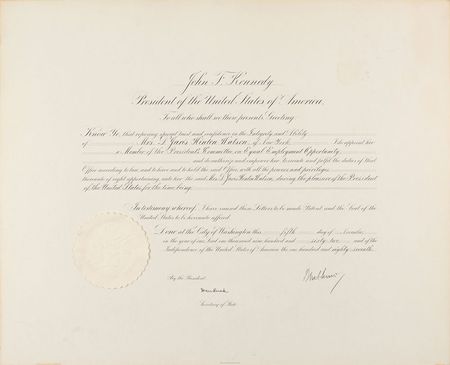 John F. Kennedy
President of the United States of America,
To all who shall see these presents, Greeting:
Know Ye, that reposing special trust and confidence in the Integrity and Ability
of Mrs. of New York I do appoint her
a Member of the President's Committee on Equal Employment Opportunity
and do authorize and empower her to execute and fulfil the duties of that
Office according to law, and to have and to hold the said Office, with all the powers and privileges
thereunto of right appertaining, unto her the said Mrs. during the pleasure of the President
of the United States for the time being.
In testimony whereof, I have caused these Letters to be made Patent and the Seal of the
United States to be hereunto affixed.
Done at the City of Washington this fifth day of
in the year of our Lord one thousand nine hundred and sixty-two and of the
Independence of the United States of America the one hundred and eighty-seventh.
By the President:
Dean Rusk
Secretary of State.